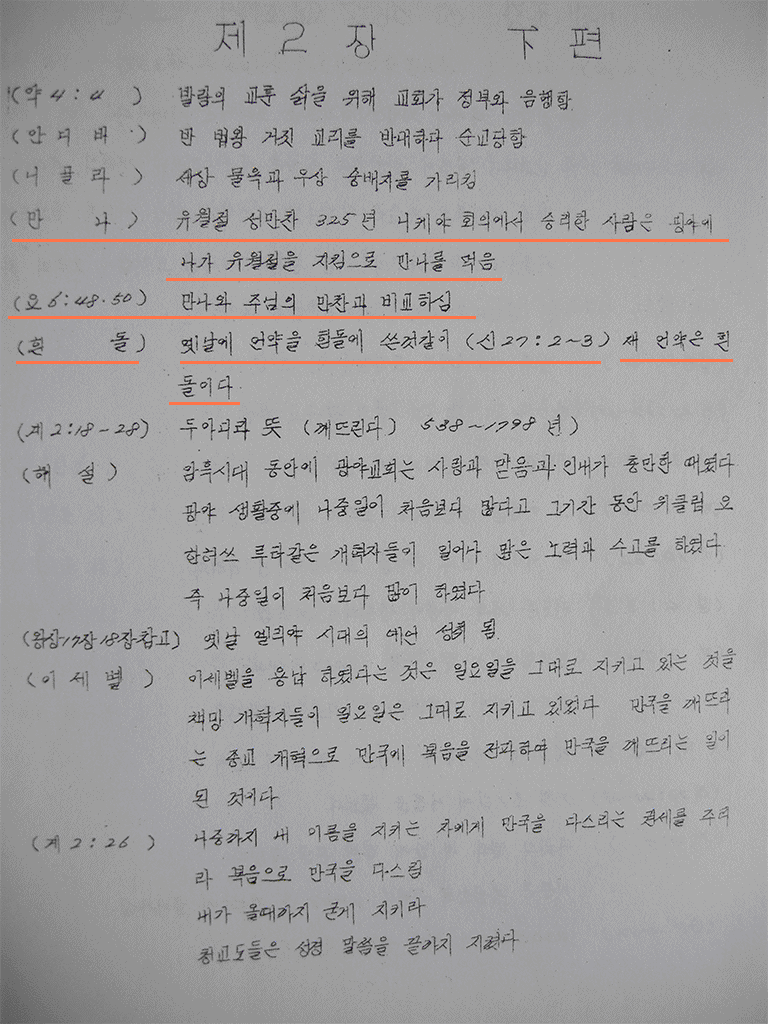 제 2 장 下 편
(약 4 : 4 ) 발람의 교훈 삶을 위해 교회가 정부와 음행함
( 안 디 바 ) 반 법왕 거짓 교리를 반대하다 순교당함
( 니 골 라 ) 세상 물욕과 우상 숭배자를 가리킴
( 만 나 ) 유월절 성만찬 325년 니케아 회의에서 승리한 사람은 광야에
나가 유월절을 지킴으로 만나를 먹음
(요 6 : 48.50) 만나와 주님의 만찬과 비교하심
(흰 돌) 옛날에 언약을 흰돌에 쓴것같이 (신 27 : 2~3) 새 언약은 흰
돌이다.
(계 2:18-28) 두아디라 뜻 (깨뜨린다) 538~1798 년)
( 해 설 ) 암흑시대 동안에 광야교회는 사랑과 믿음과 인내가 충만한 때였다
광야 생활중에 나중일이 처음보다 많다고 그기간 동안 위클립 요
한허쓰 루타같은 개혁자들이 일어나 많은 노력과 수고를 하였다
즉 나중일이 처음보다 많이 하였다
(왕상17장18장참고) 옛날 엘리야 시대의 예언 성취 됨
( 이 세 벨 ) 이세벨을 용납 하였다는 것은 일요일을 그대로 지키고 있는 것을
책망 개혁자들이 일요일은 그대로 지키고 있었다 만국을 깨뜨리
는 종교 개혁으로 만국에 복음을 전파하여 만국을 깨뜨리는 일이
된 것이다
(계 2 : 26 ) 나중까지 내 이름을 지키는 자에게 만국을 다스리는 권세를 주리
라 복음으로 만국을 다스림
내가 올때까지 굳게 지키라
청교도들은 성경 말씀을 끝까지 지켰다